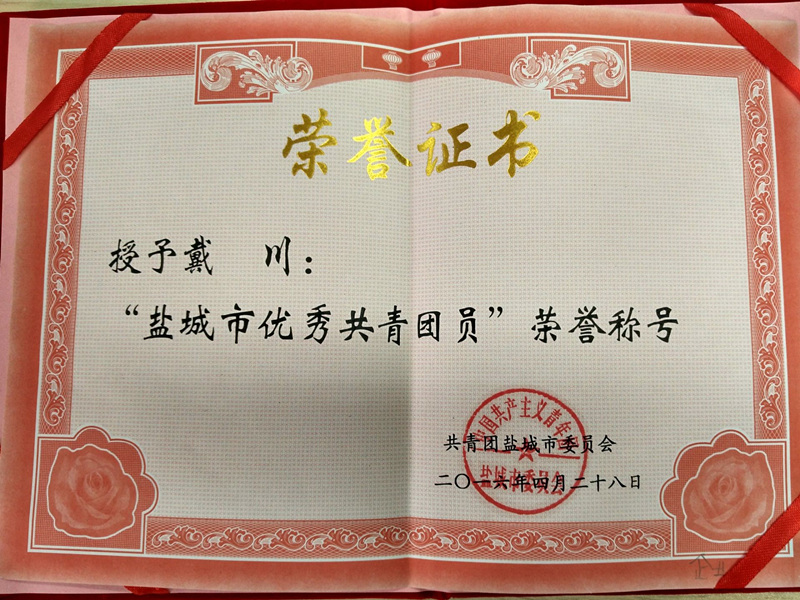 荣誉证书
授予戴 川：
“盐城市优秀共青团员”荣誉称号
共青团盐城市委员会
二〇一六年四月二十八日
盐城市委员会